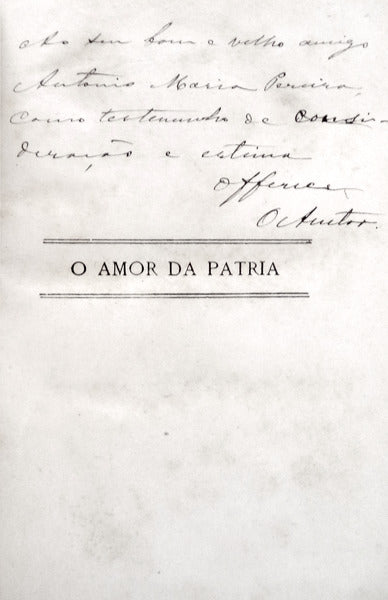 Ao seu bom e velho amigo
Antonio Maria Pereira,
como testemunho de consi-
deração e estima
offerece
O Auctor.
O AMOR DA PATRIA